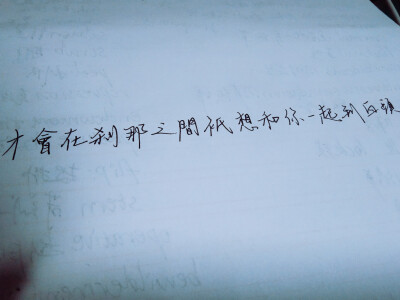 才會在刹那之間祇想和你一起到白頭